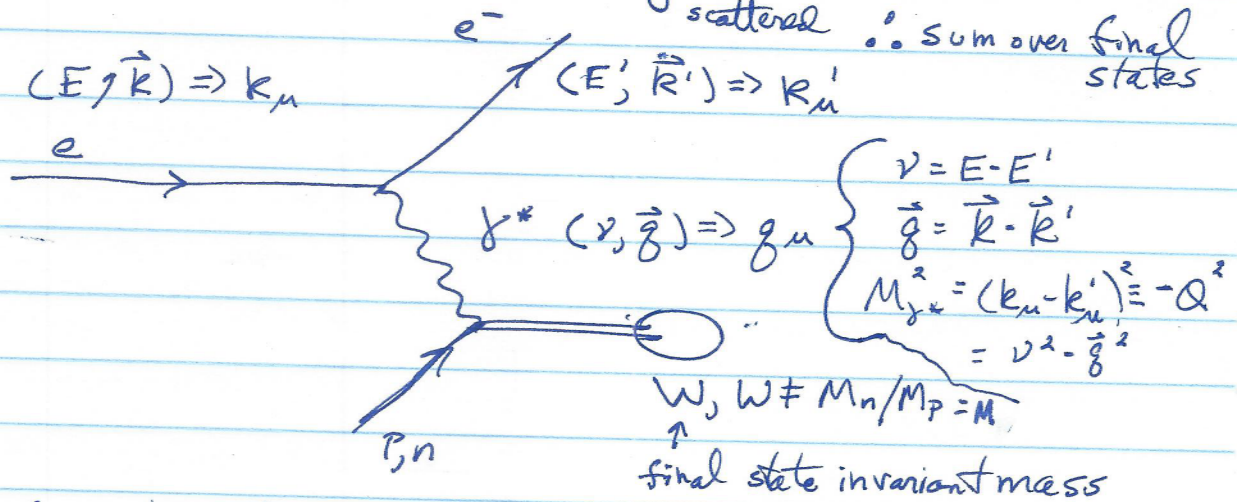 scattered ∴ sum over final
states
e⁻
(E, k⃗) => kμ
(E', k⃗') => k'μ
e
γ* (ν, q⃗) => qμ
ν = E - E'
q⃗ = k⃗ - k⃗'
M²γ* = (kμ - k'μ)² ≡ -Q²
= ν² - q⃗²
W, W ≠ Mn/Mp = M
P,n
↑
final state invariant mass